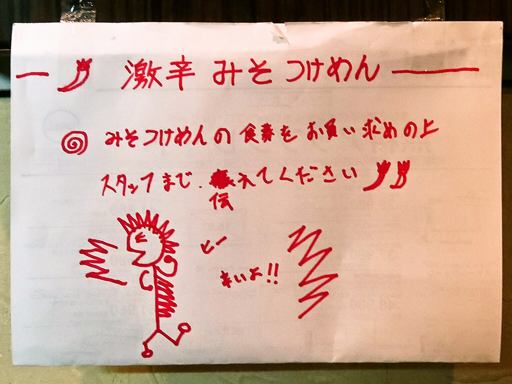 激辛 みそ つけめん
みそつけめんの 食券を お買い求めの上
スタッフまで、伝えてください
辛いよ!!